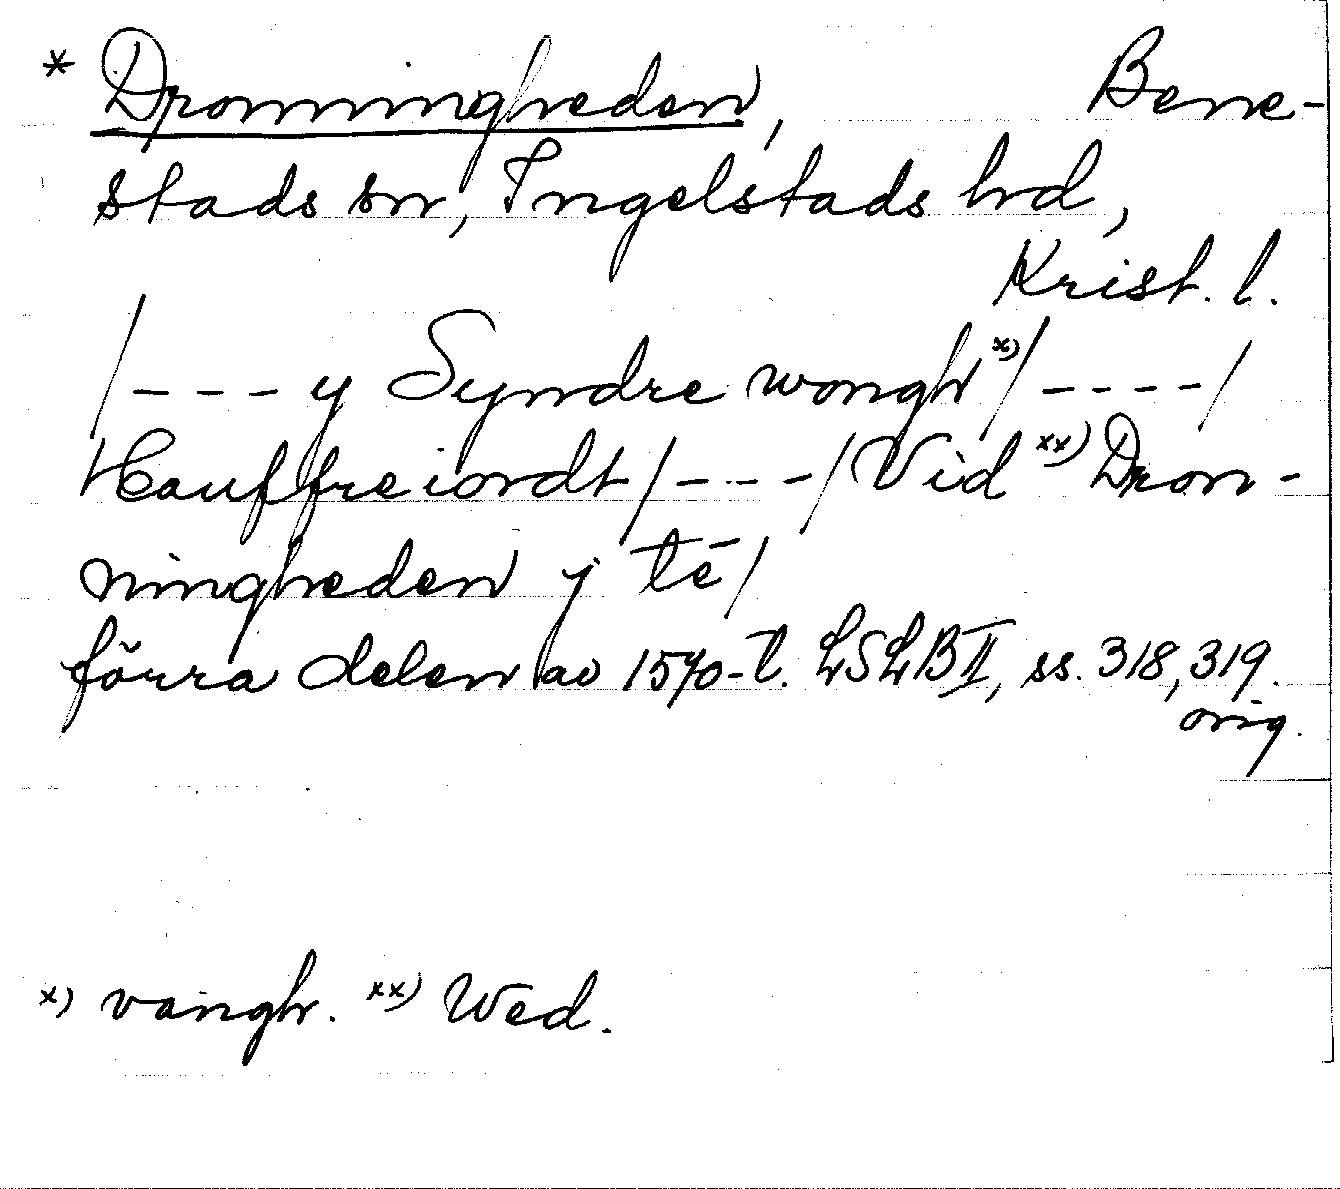 * Dronningheden, Bene-
stads sn, Ingelstads hd,
Krist. l.
/- - - y Syndre wongh x)/ - - - -/
Hauffreiordt/- - - -/Vid xx) Dron-
ningheden y tē/
förra delen av 1570-t. LSLB II, ss. 318, 319.
orig.
x) vangh. xx) Wed.